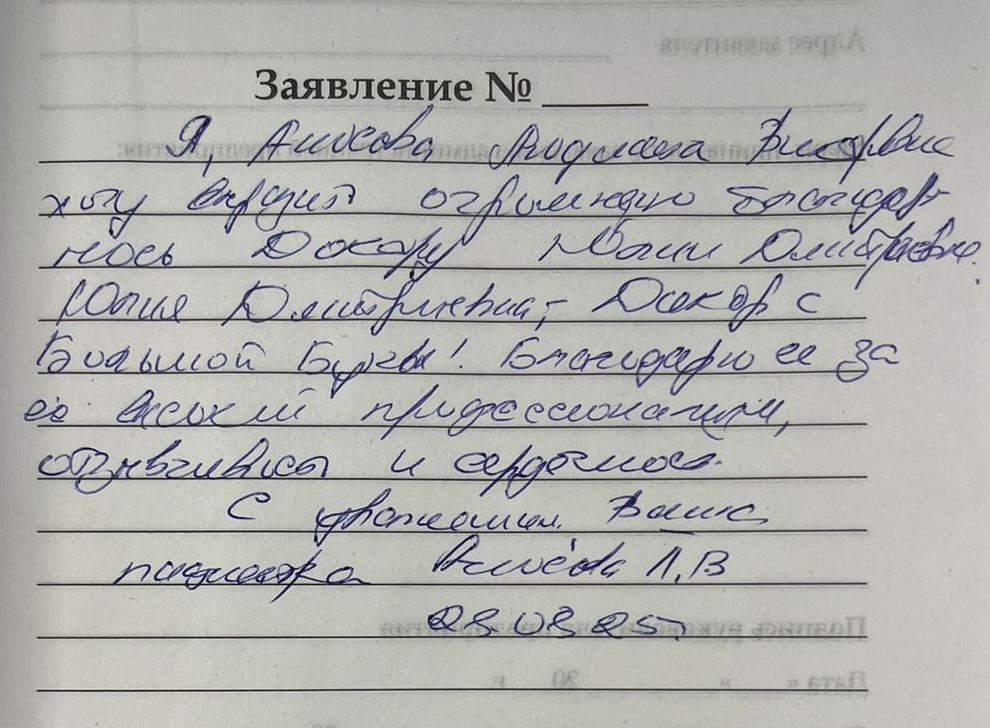 Адрес заявителя
Заявление № ____
Я, Людмила Викторовна
хочу выразить огромную благодар-
ность Доктору Юлии Дмитриевне.
Юлия Дмитриевна, - Доктор с
Большой Буквы! Благодарю ее за
её высокий профессионализм,
отзывчивость и сердечность.
С уважением Ваша
пациентка Л.В
28.08.25
Подпись руководителя предприятия
Дата « » 20 г